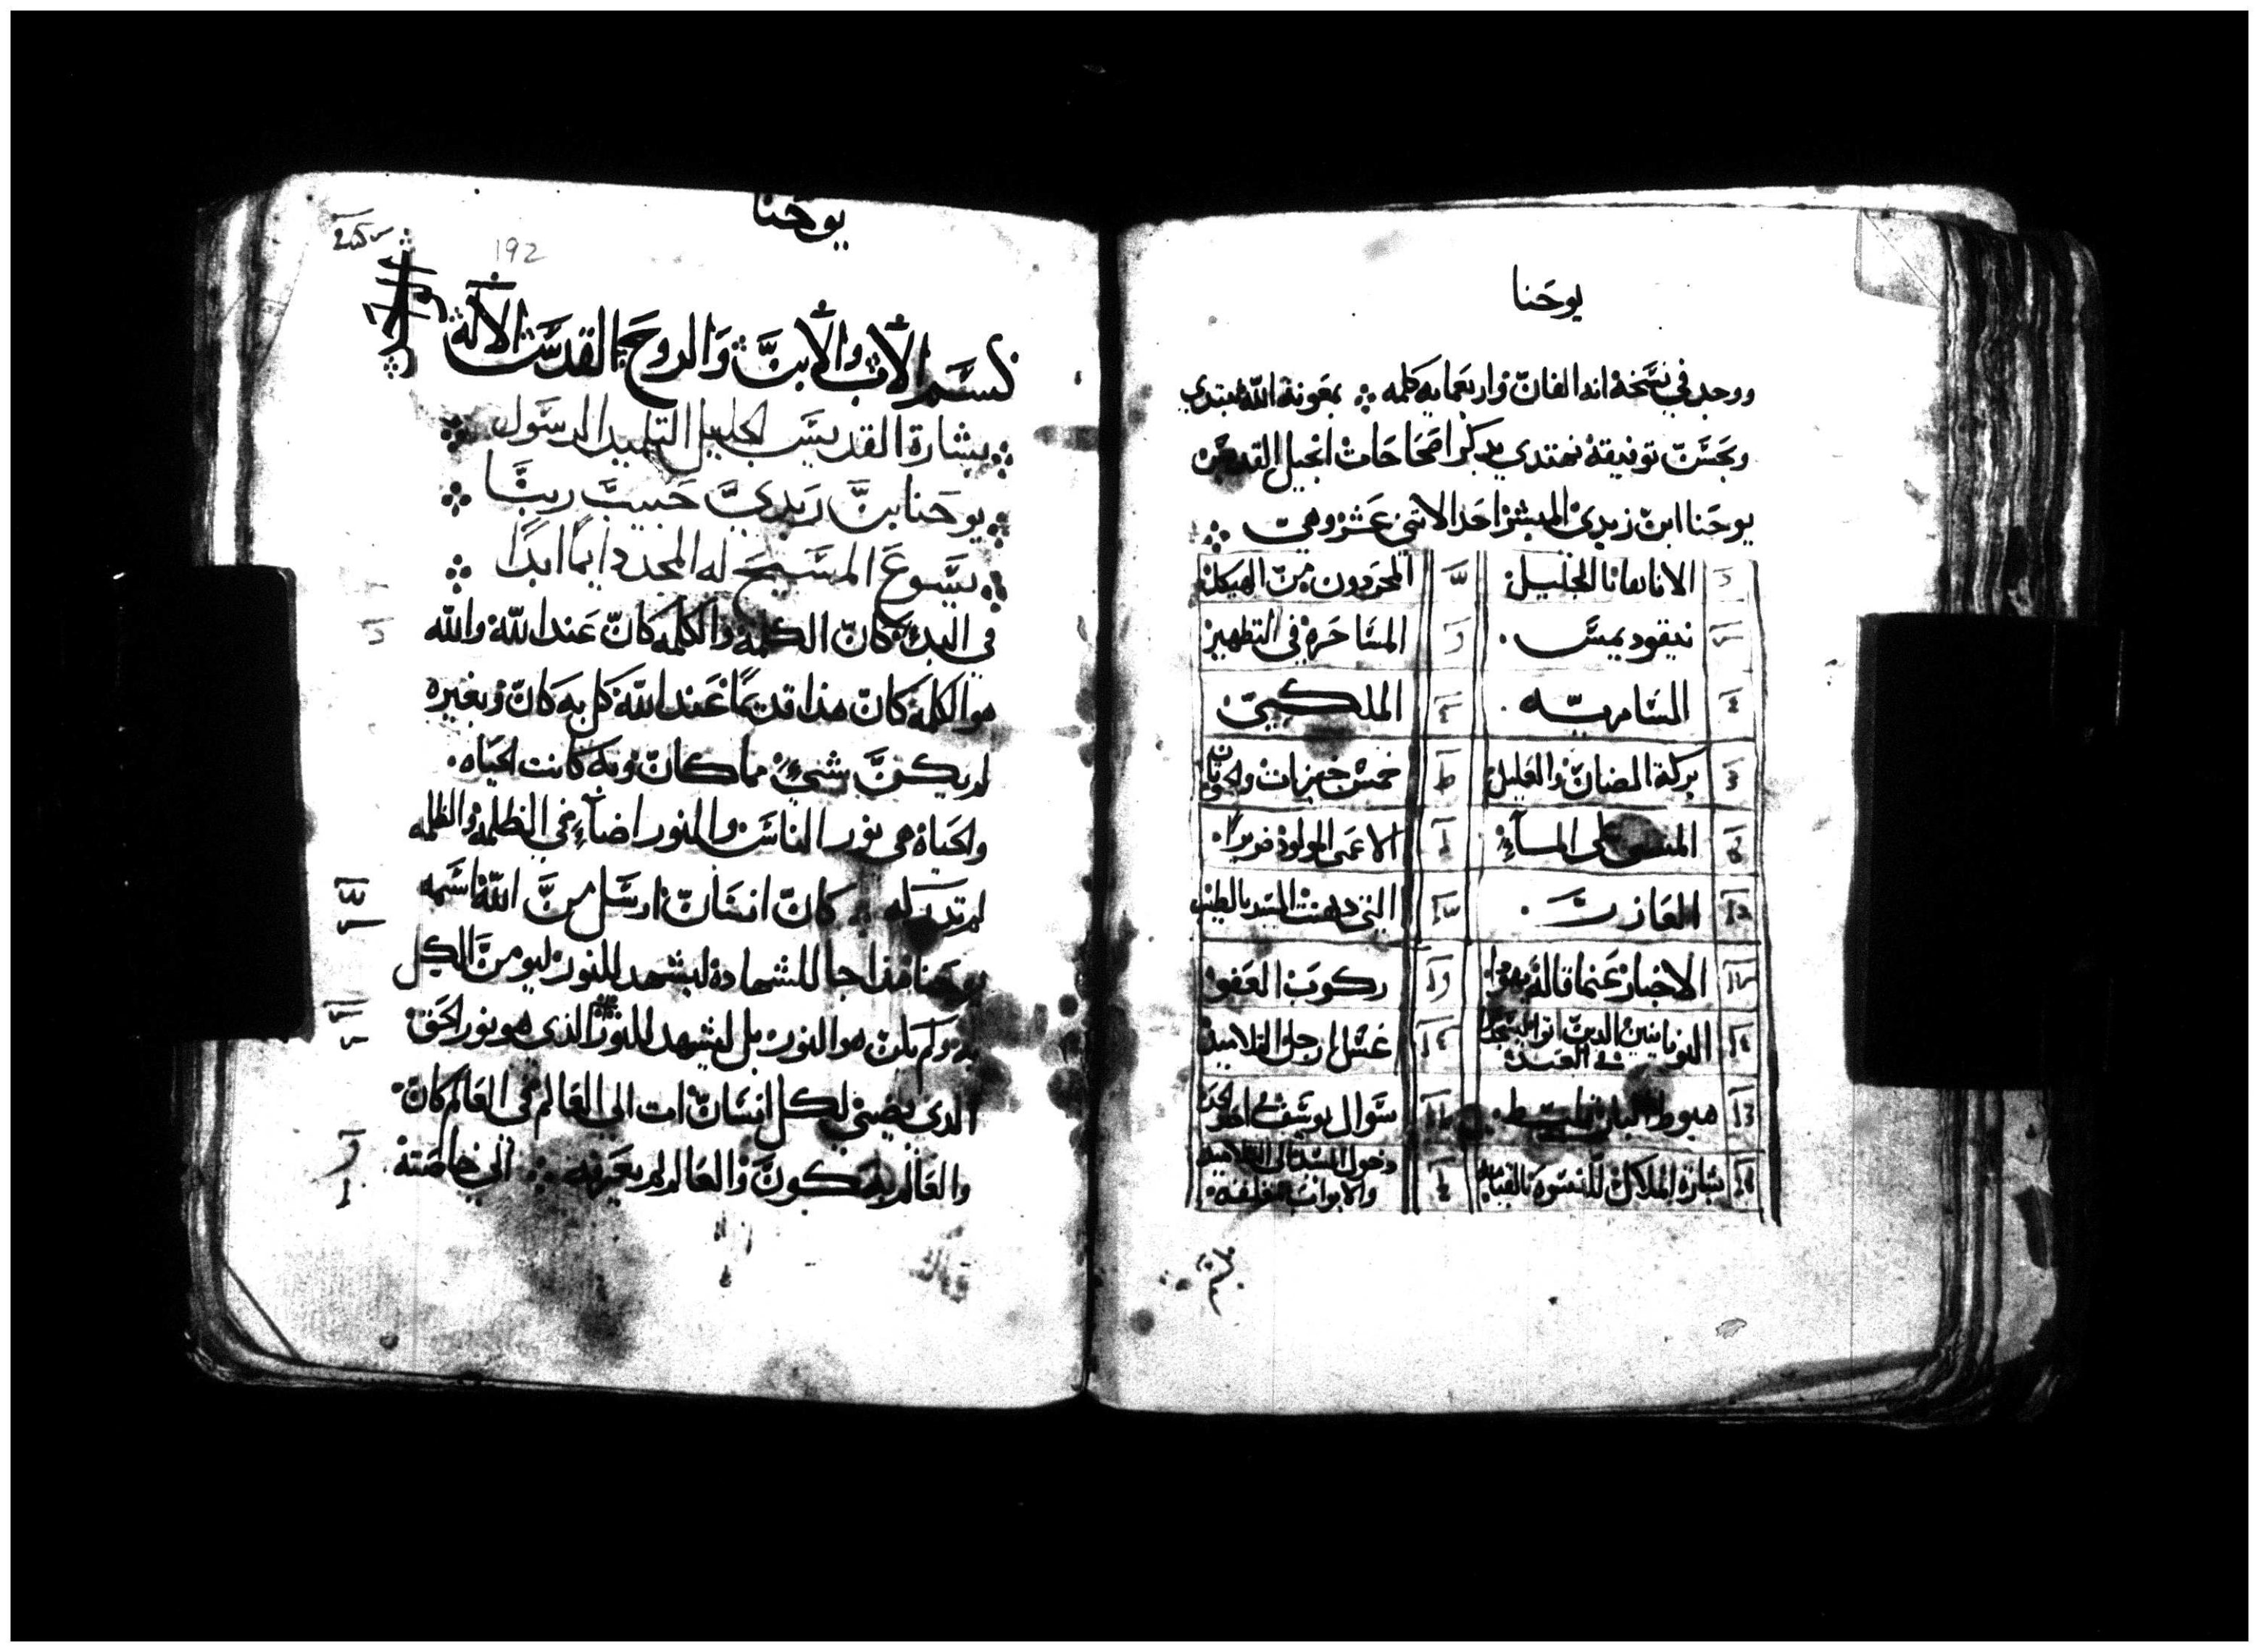 يوحنا
ووجد في نسخة انه الفان واربعمايه كلمه ܀ بمعونة الله نبتدي
وبحسن توفيقه نهتدي بذكر اصحاحات انجيل القديس
يوحنا ابن زبدي المبشر احد الاتني عشر وهي
الاناقانا الجليل المخرجون من الهيكل
نيقوديمس المشاجره في التطهير
السامريه الملكي
بركة الضان والعليل خمس خبزات والحوتان
المشي على المآء الاعمى المولود ضريرا
العازر التي دهنت السيد بالطيب
الاخبار عنما قاله يهودا ركوب العفو
اليونانيين الدين اتوا ليسجدوا في العيد غسل ارجل التلاميد
هبوط البارقليط سوال يوسف في اخد
بشارة الملاك للنسوه بالقيامه دخول السيد الى التلاميد والابواب مغلقه
يوحنا
192
بسم الاب والابن والروح القدس الاله
بشارة القديس الجليل التلميد الرسول
يوحنا بن زبدي حبيب ربنا
يسوع المسيح له المجد دايما ابدا
في البدء كان الكلمة والكلمه كان عند الله والله
هو الكلمة كان هذا قديما عند الله كل به كان وبغيره
لم يكن شيء مما كان وبه كانت الحياه
والحياة هي نور الناس والنور اضآء في الظلمة والظلمه
لم تدركه ܀ كان انسان ارسل من الله اسمه
يوحنا هذا جا للشهادة ليشهد للنور ليومن الكل
به ولم يكن هو النور بل ليشهد للنور الذي هو نور الحق
الدي يضي لكل انسان ات الى العالم في العالم كان
والعالم به كون والعالم لم يعرفه ܀ الي خاصته